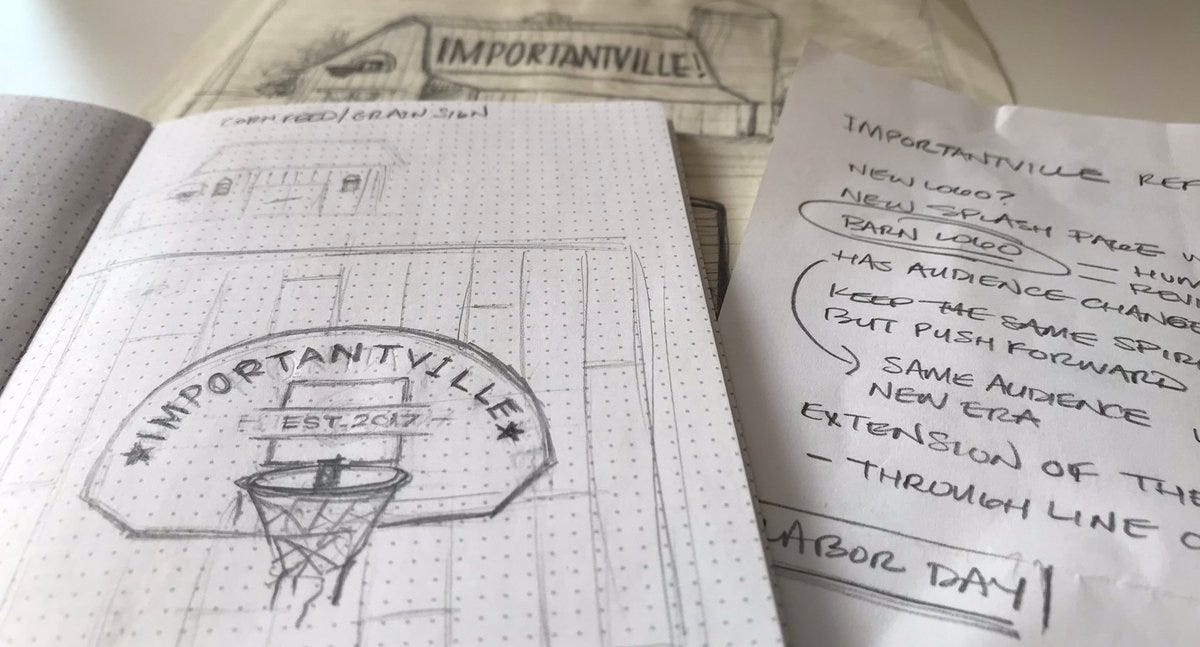 IMPORTANTVILLE!
CORN FEED/GRAIN SIGN
★IMPORTANTVILLE★
EST. 2017
IMPORTANTVILLE
NEW LOGO?
NEW SPLASH PAGE
BARN LOGO =
HAS AUDIENCE
KEEP THE SAME
BUT PUSH FORWARD
SAME AUDIENCE
NEW ERA
EXTENSION OF
- THROUGH LINE
LABOR DAY